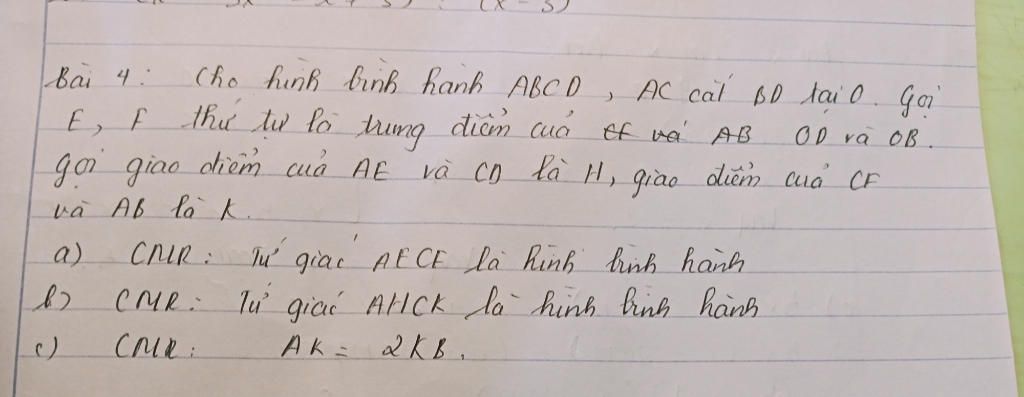 3x - x + 3) : (x - 3)
Bài 4: Cho hình bình hành ABCD, AC cắt BD tại O. Gọi
E, F thứ tự là trung điểm của OD và OB.
gọi giao điểm của AE và CD là H, giao điểm của CF
và AB là K.
a) CMR: Tứ giác AECF là hình bình hành
b) CMR: Tứ giác AHCK là hình bình hành
c) CMR: AK = 2KB.